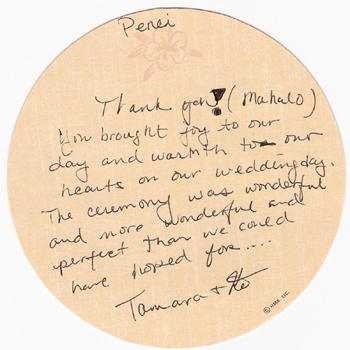 Penei
Thank you! (Mahalo)
You brought joy to our
day and warmth to our
hearts on our wedding day.
The ceremony was wonderful
and more wonderful and
perfect than we could
have hoped for....
Tamara +
© HHH. LLC